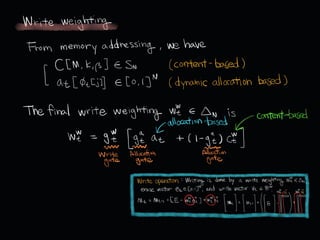 Write weighting
From memory addressing, we have
C[M, k, β] ∈ S_N (content-based)
a_t[φ_t[j]] ∈ [0,1]^N (dynamic allocation based)
The final write weighting w_t^w ∈ Δ_N is
allocation-based content-based
w_t^w = g_t^w [g_t^a a_t + (1-g_t^a) c_t^w]
Write gate Allocation gate Allocation gate
Write operation: Writing is done by a write weighting
erase vector e_t ∈ [0,1]^W, and write vector